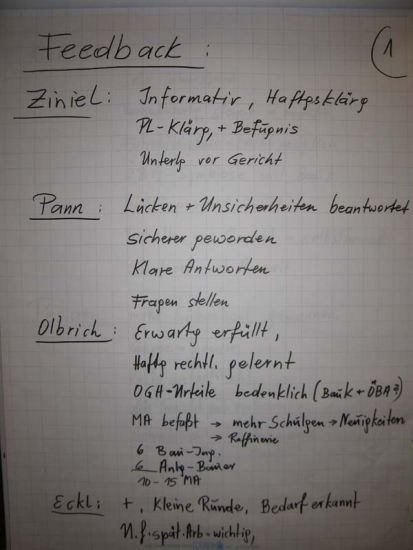 Feedback :
1
Ziniel: Informativ, Haftgsklärg
PL-Klärg, + Befugnis
Unterlg vor Gericht
Pann : Lücken + Unsicherheiten beantwortet
sicherer geworden
Klare Antworten
Fragen stellen
Olbrich : Erwartg erfüllt,
Haftg rechtl. gelernt
OGH-Urteile bedenklich (BauK + ÖBA?)
MA befaßt → mehr Schulgen → Neuigkeiten
→ Raffinerie
6 Bau-Ing.
6
10-15 MA
Eckl: +, Kleine Runde, Bedarf erkannt
N.f. spät. Arb. wichtig,